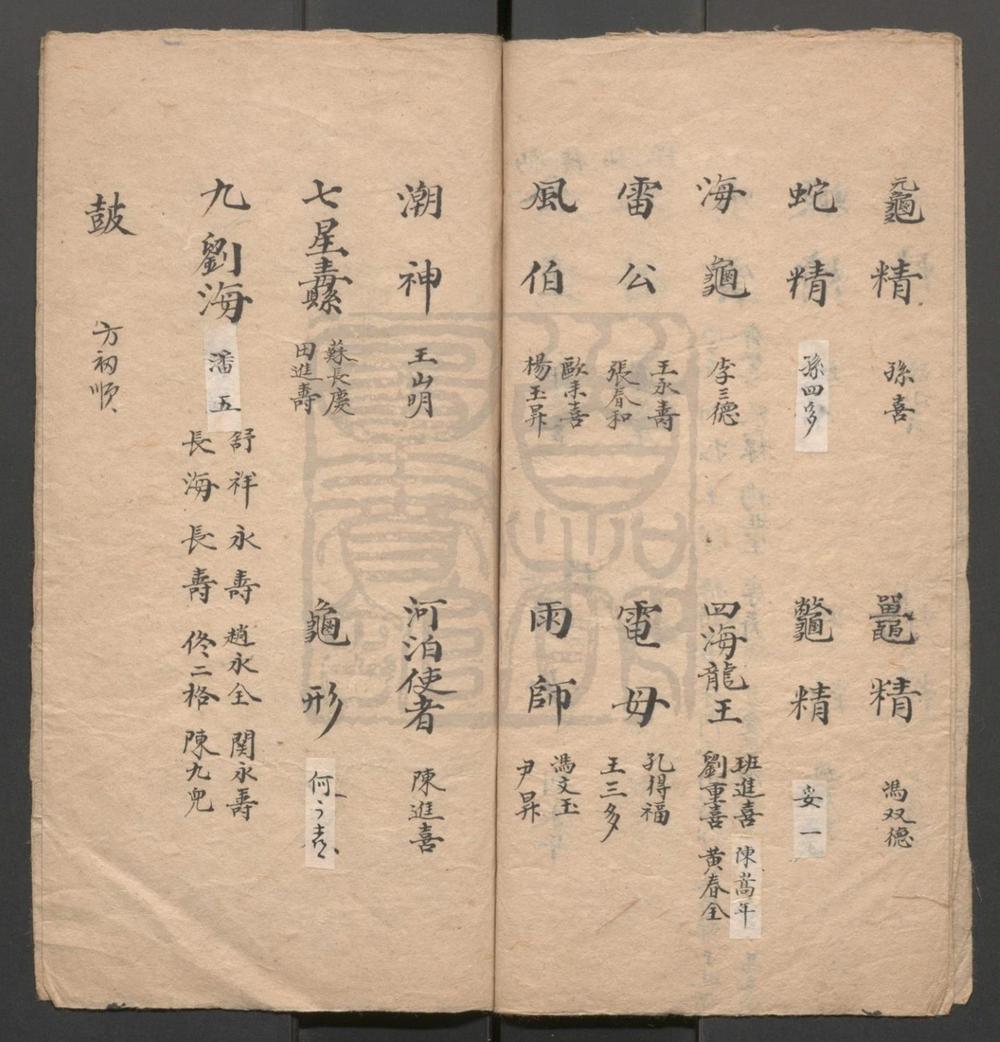 元龜精 孫喜
鼉精 馮双德
蛇精 孫四多
鼈精 一
海龜 李三德
四海龍王 班進喜 陳嵩年 劉重喜 黃春全
雷公 王永壽 張春和
電母 孔得福 王三多
風伯 歐来喜 楊玉昇
雨師 馮文玉 尹昇
潮神 王山明
河泊使者 陳進喜
七星纛 蘇長慶 田進壽
龜形 何
九劉海 潘五 舒祥 永壽 趙永全 関永壽 長海 長壽 佟二格 陳九兒
鼓 方初順